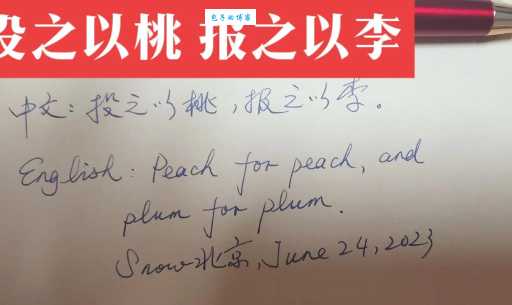 包子的博客
投之以桃 报之以李
中文：投之以桃，报之以李。
English: Peach for peach, and
plum for plum.
Snow北京, June 24, 2023